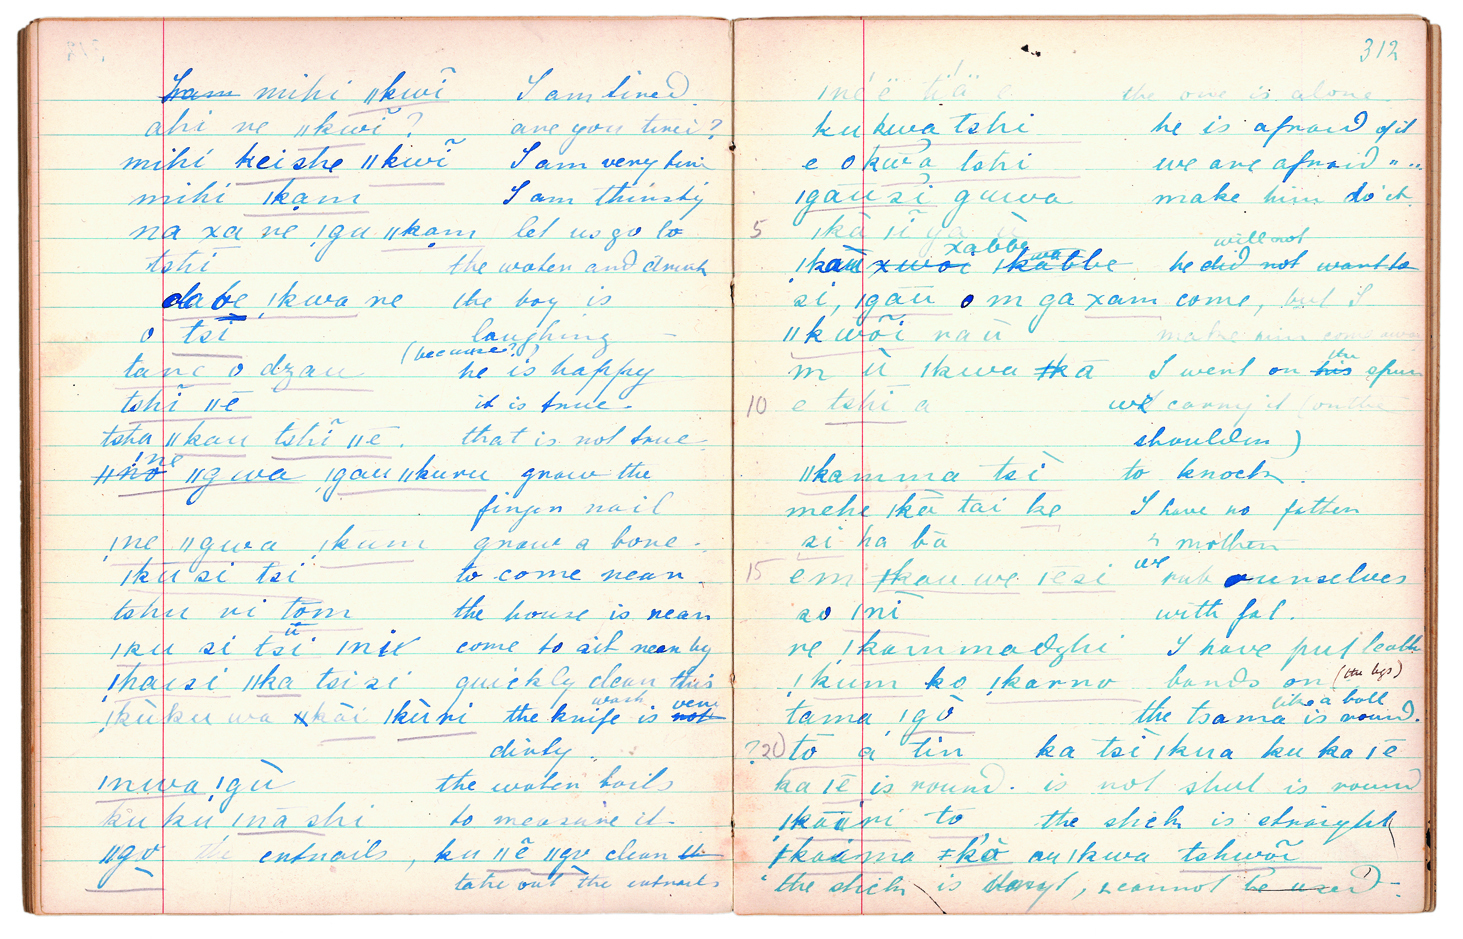 mihi ǁkwĩ I am tired.
ahi ne ǁkwĩ? are you tired?
mihi keishe ǁkwĩ I am very tired
mihi ǀkam I am thirsty
na xa ne ǀgu ǁkam let us go to
tshi the water and drink
dabe ǀkwa ne the boy is
o tsi laughing
(because?)
tane o dzau he is happy
tshĩ ǁē it is true.
tsha ǁkau tshĩ ǁē. that is not true
ǀne ǁgwa ǀgau ǁkuru gnaw the
finger nail
ǀne ǁgwa ǀkum gnaw a bone.
ǀkū si tsi to come near.
tshu ni tom the house is near
ǀku si tsi ǀni come to sit near by
ǀhaisi ǁka tsisi quickly clean this
wash very
ǀkūku wa ǁkāi ǀkūri the knife is not
dirty.
ǀnwa ǀgù the water boils
ku ku ǀnāshi to measure it.
ǁgo the entrails, ku ǁē ǁgo clean the
take out the entrails
312
the one is alone
ku kwa tshi he is afraid of it
e o kwa tshi we are afraid " "
ǀgausi guwa make him do it.
5 ǀkā ǀĩ ya ū
xabbe wa will not
ǀkau xwoi ǀkabbe he did not want to
si, ǀgāū o m ga xam come, but I
ǁkwōi na ū make him come away
the
m ū ǀkwa ǂkā I went on his spoor
10 e tshi a we carry it (on the
shoulder)
ǁkamma tsi to knock.
mehe ǀkā tai ke I have no father
si ha bā or mother
15 em ǂkau we ǀēsi we rub ourselves
so ǀnī with fat.
ne ǀkammadzhi I have put leather
ǀkum ko ǀkarno bands on (the legs)
like a ball
tama ǀgō the tsama is round.
?20 tō a tin ka tsi ǀkua ku ka ǀē
ka ǀē is round. is not shut is round
ǀkāāni to the stick is straight
ǂkaama ǂkō au ǀkwa tshwōi
the stick is bent, & cannot be used.